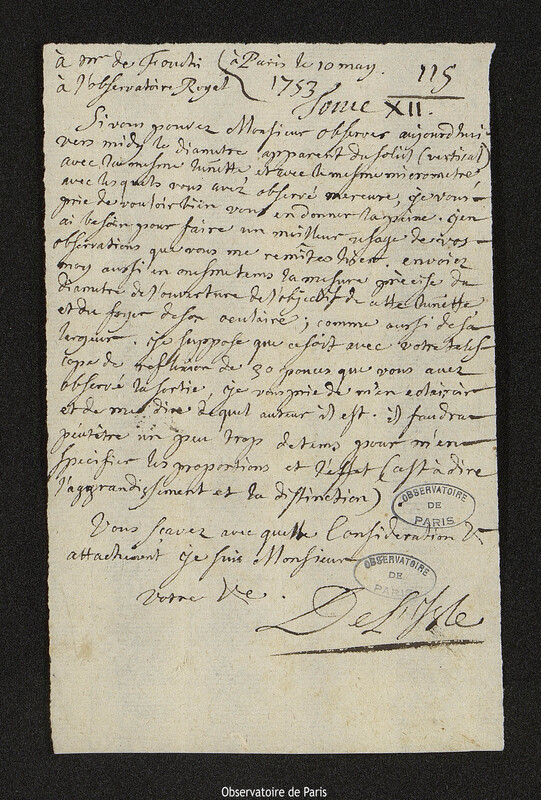 à Mr de Fouchi à Paris le 10 may
à l'observatoire Royal 1753
115
Tome XII.
Si vous pouvez Monsieur observer aujourdhui
vers midy le diametre apparent du soleil (vertical)
avec la mesme lunette et avec le mesme micrometre
avec lesquels vous avez observé mercure, je vous
prie de vouloir bien vous en donner la peine. j'en
ai besoin pour faire un meilleur usage de vos
observations que vous me remites hier. envoiez
moy aussi en mesme tems la mesure précise du
diametre de l'ouverture de l'objectif de cette lunette
et du foyer de son oculaire; comme aussi de sa
largeur. je suppose que ce soit avec votre teles
cope de reflexion de 30 pouces que vous avez
observé la sortie. je vous prie de m'en eclaircir
et de me dire de quel auteur il est. il faudra
peutêtre un peu trop de tems pour m'en
specifier les proportions et l'effet (c'est à dire
l'aggrandissement et la distinction)
Vous scavez avec quelle Consideration &
attachement je suis Monsieur
votre &c.
De L'Isle
OBSERVATOIRE
DE
PARIS
OBSERVATOIRE
DE
PARIS
Observatoire de Paris